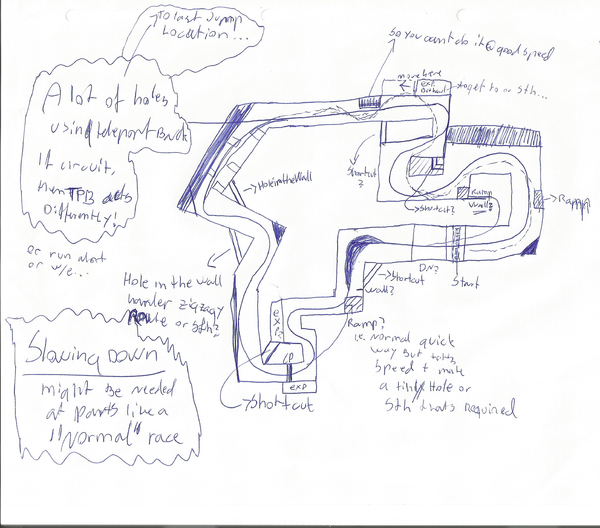 To last Jump
Location...
A lot of holes
using teleport Back
If circuit,
then TPB acts
Differently!
or run alert
or w/e...
Slowing Down
might be needed
at parts like a
"Normal" race
so you cant do it@good speed
move here
exp.
to get to or sth...
shortcut
?
Hole in the Wall
Ramp
wall?
shortcut?
Ramp
D.N?
Start
Hole in the wall
harder zigzagy
Route or sth?
exp?
shortcut
wall?
Ramp?
i.e. normal quick
way but
speed + make
a tiny Hole or
sth thats required
exp
shortcut